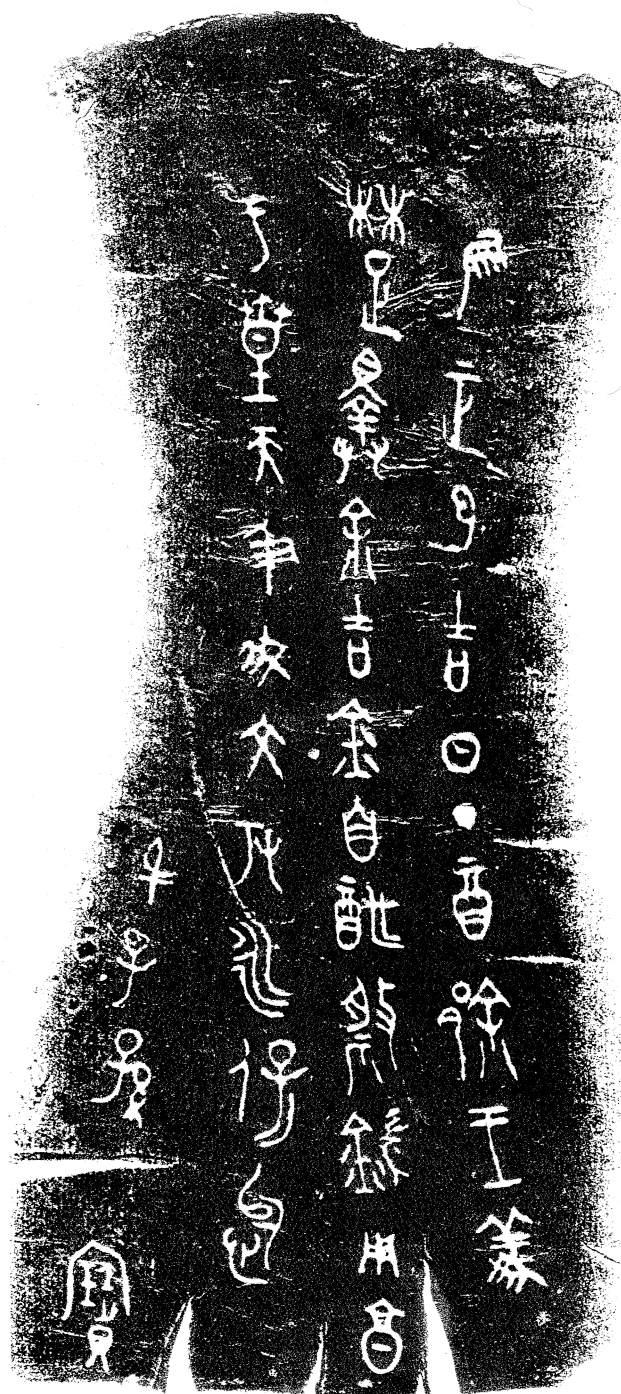 隹正月吉日丁酉徐王義
楚擇余吉金自酢祭鍴用享
于皇天及我文考永保台
身子孫寶